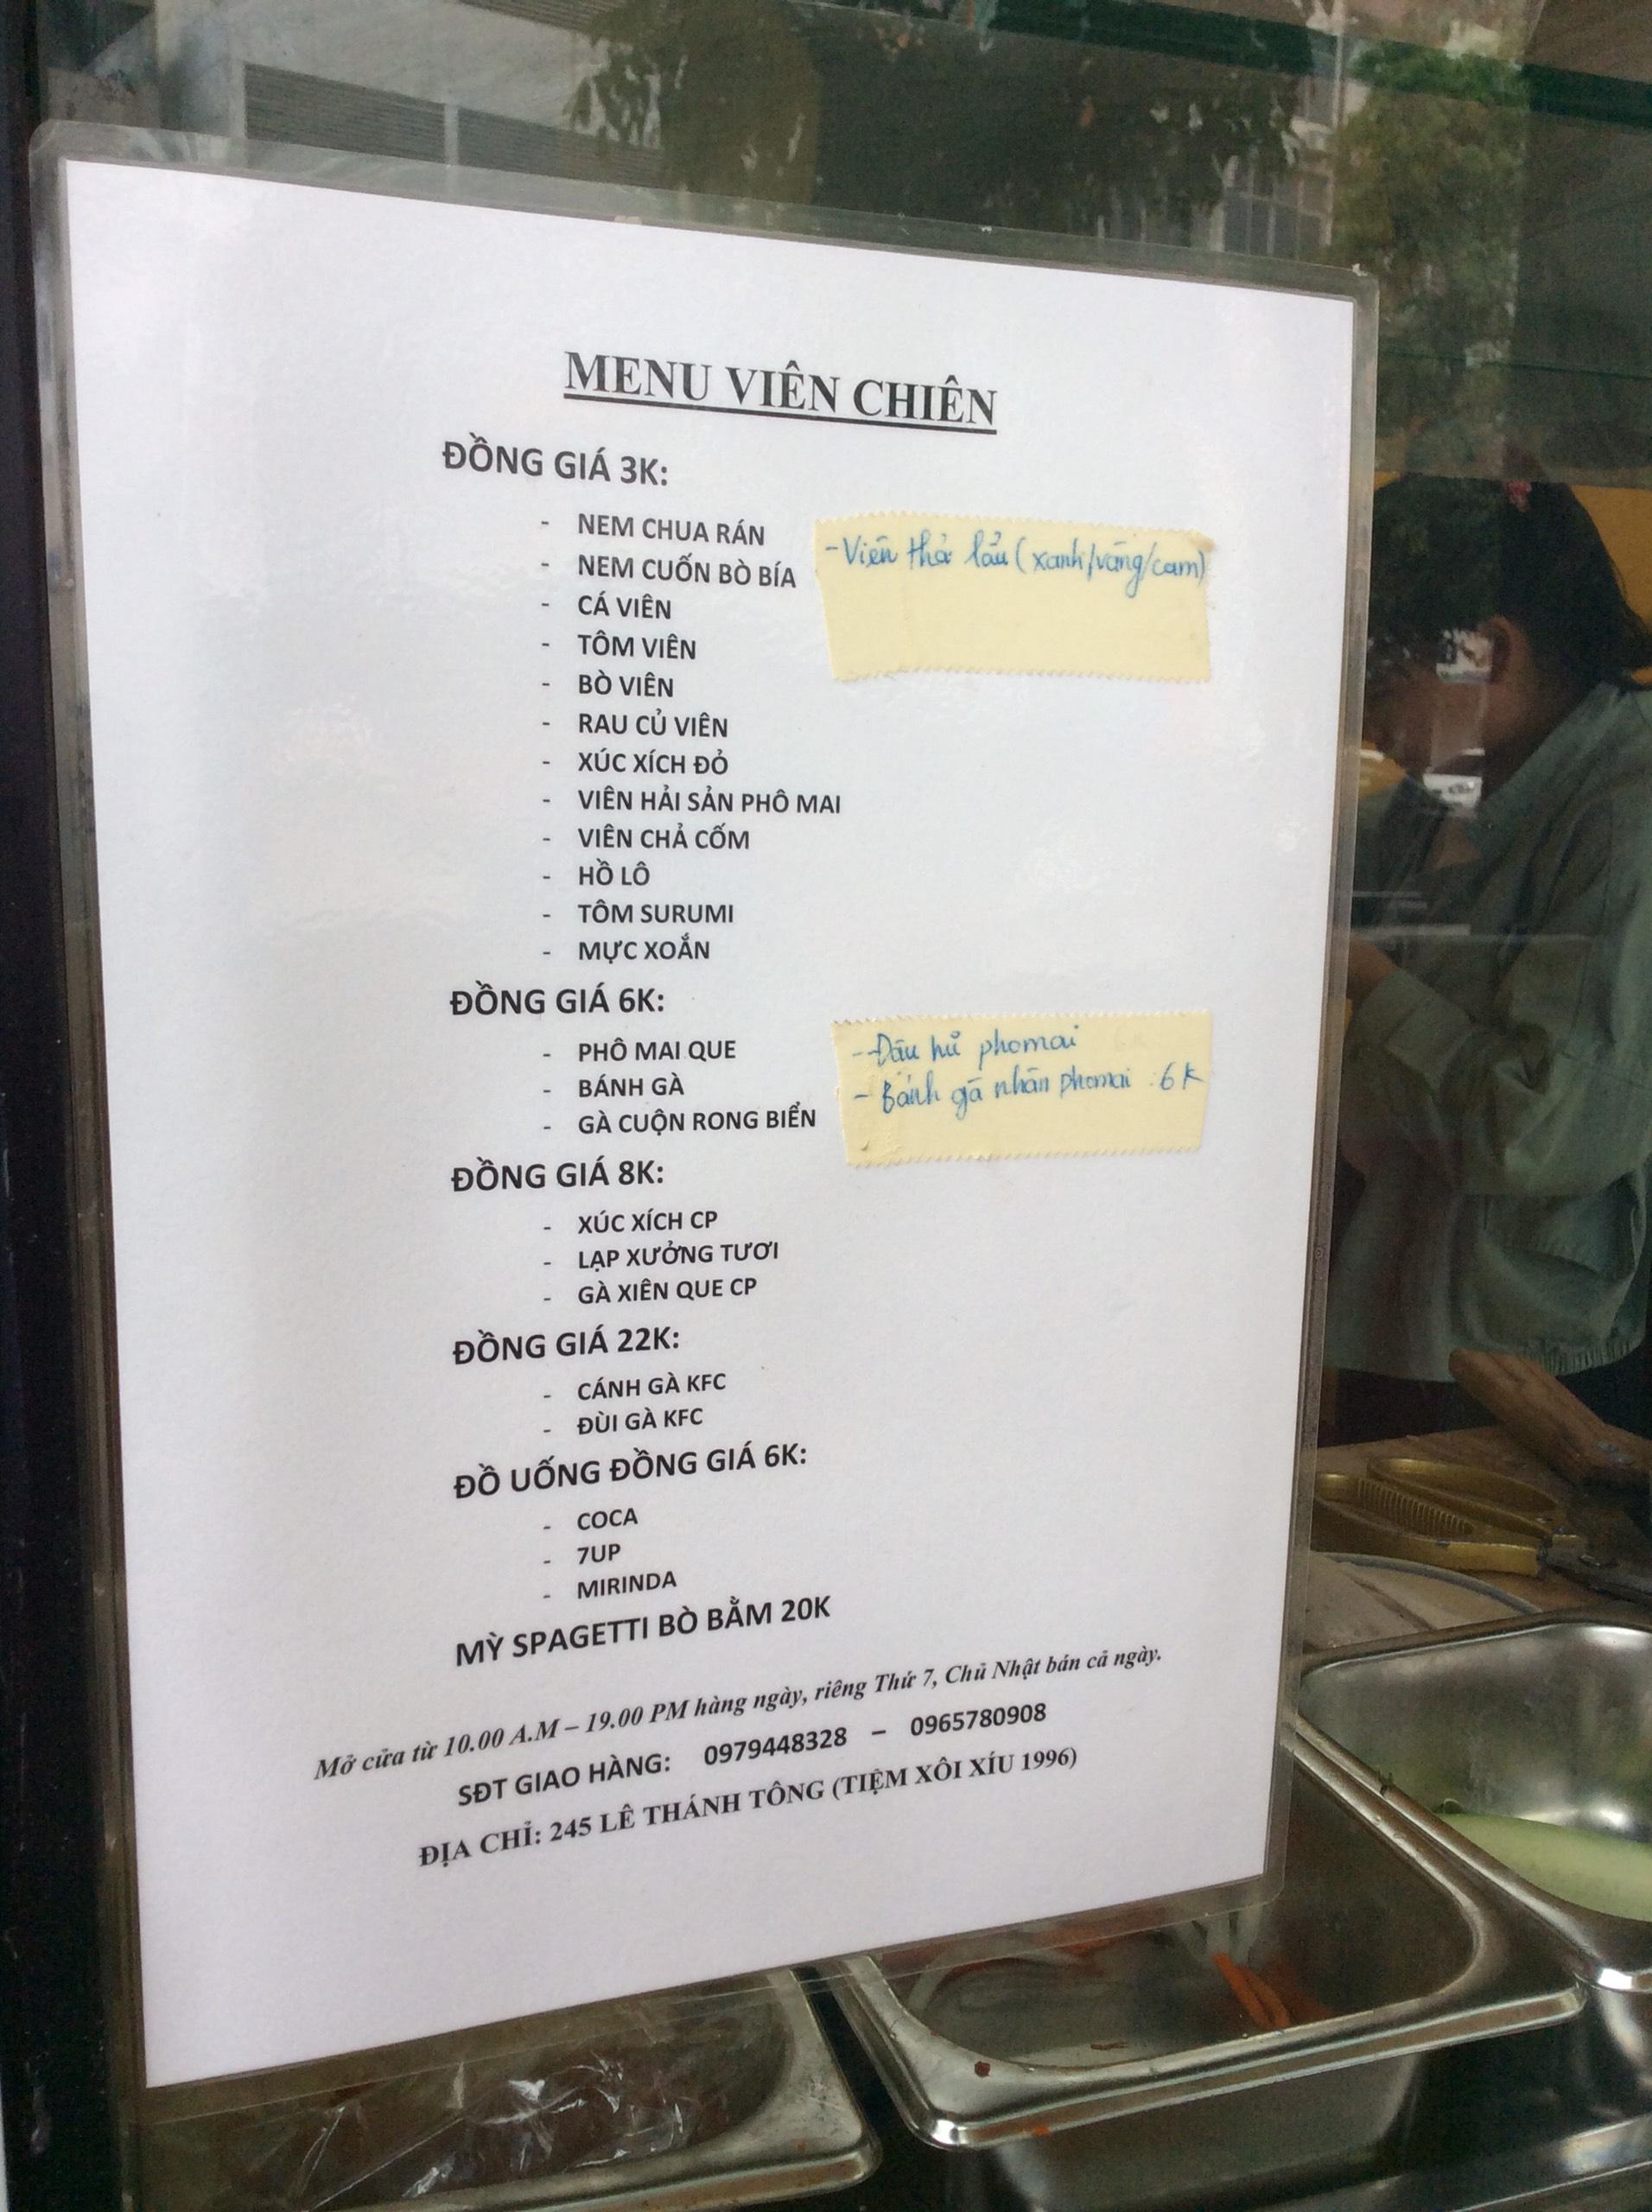 MENU VIÊN CHIÊN
ĐỒNG GIÁ 3K:
- NEM CHUA RÁN
- NEM CUỐN BÒ BÍA
- CÁ VIÊN
- TÔM VIÊN
- BÒ VIÊN
- RAU CỦ VIÊN
- XÚC XÍCH ĐỎ
- VIÊN HẢI SẢN PHÔ MAI
- VIÊN CHẢ CỐM
- HỒ LÔ
- TÔM SURUMI
- MỰC XOẮN
- Viên thả lẩu (xanh/vàng/cam)
ĐỒNG GIÁ 6K:
- PHÔ MAI QUE
- BÁNH GÀ
- GÀ CUỘN RONG BIỂN
- Đậu hũ phomai
- Bánh gà nhân phomai : 6K
ĐỒNG GIÁ 8K:
- XÚC XÍCH CP
- LẠP XƯỞNG TƯƠI
- GÀ XIÊN QUE CP
ĐỒNG GIÁ 22K:
- CÁNH GÀ KFC
- ĐÙI GÀ KFC
ĐỒ UỐNG ĐỒNG GIÁ 6K:
- COCA
- 7UP
- MIRINDA
MỲ SPAGETTI BÒ BẰM 20K
Mở cửa từ 10.00 A.M – 19.00 PM hàng ngày, riêng Thứ 7, Chủ Nhật bán cả ngày.
SĐT GIAO HÀNG: 0979448328 – 0965780908
ĐỊA CHỈ: 245 LÊ THÁNH TÔNG (TIỆM XÔI XÍU 1996)